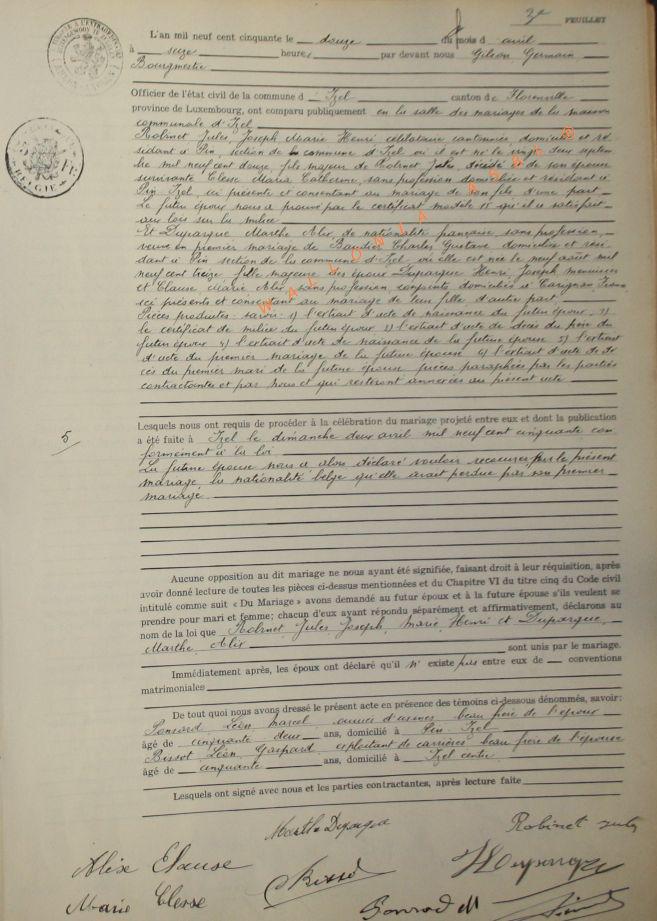 3e FEUILLET
L'an mil neuf cent cinquante le douze du mois d avril
à seize heures par devant nous Gilson Germain
Bourgmestre
Officier de l'état civil de la commune d' Izel canton de Florenville
province de Luxembourg, ont comparu publiquement en la salle des mariages de la maison
communale d'Izel
Robinet Jules Joseph Marie Henri célibataire cantonnier domicilié et ré-
sidant à Pin, section de la commune d'Izel où il est né le vingt deux septem-
bre mil neuf cent douze, fils majeur de Robinet Jules décédé et de son épouse
survivante Clesse Maria Catherine, sans profession domiciliée et résidant à
Pin Izel, ici présente et consentant au mariage de son fils d'une part
Le futur époux nous a prouvé par le certificat modèle qu'il a satisfait
aux lois sur la milice
Et Duparque Marthe Alix, de nationalité française, sans profession,
veuve en premier mariage de Charles Gustave domiciliée et rési-
dant à Pin section de la commune d'Izel, où elle est née le neuf août mil
neuf cent treize fille majeure des époux Duparque Henri Joseph menuisier
et Clause Marie Alix sans profession, conjoints domiciliés à Carignan France
ici présents et consentant au mariage de leur fille d'autre part.
Pièces produites savoir: 1) l'extrait d'acte de naissance du futur époux, 2)
le certificat de milice du futur époux 3) l'extrait d'acte de décès du père du
futur époux 4) l'extrait d'acte de naissance de la future épouse 5) l'extrait
d'acte du premier mariage de la future épouse 6) l'extrait d'acte de dé-
cès du premier mari de la future épouse pièces paraphées par les parties
contractantes et par nous et qui resteront annexées au présent acte
WALLONIA ASBL ©
5
Lesquels nous ont requis de procéder à la célébration du mariage projeté entre eux et dont la publication
a été faite à Izel le dimanche deux avril mil neuf cent cinquante con
formément à la loi
La future épouse nous a alors déclaré vouloir recouvrer par le présent
mariage, la nationalité belge qu'elle avait perdue par son premier
mariage
Aucune opposition au dit mariage ne nous ayant été signifiée, faisant droit à leur réquisition, après
avoir donné lecture de toutes les pièces ci-dessus mentionnées et du Chapitre VI du titre cinq du Code civil
intitulé comme suit « Du Mariage » avons demandé au futur époux et à la future épouse s'ils veulent se
prendre pour mari et femme; chacun d'eux ayant répondu séparément et affirmativement, déclarons au
nom de la loi que Robinet, Jules Joseph, Marie, Henri et Duparque,
Marthe, Alix sont unis par le mariage.
Immédiatement après, les époux ont déclaré qu'il n' existe pas entre eux de conventions
matrimoniales
De tout quoi nous avons dressé le présent acte en présence des témoins ci-dessous dénommés, savoir:
Ponsard Léon, Marcel beau frère de l'époux
âgé de cinquante deux ans, domicilié à Pin Izel
Bissot, Léon, Gaspard exploitant de carrières beau frère de l'épouse
âgé de cinquante ans, domicilié à Izel centre
Lesquels ont signé avec nous et les parties contractantes, après lecture faite
Marthe Duparque
Robinet Jules
Alixe Clause
Bissot
Marie Clesse
Ponsard M